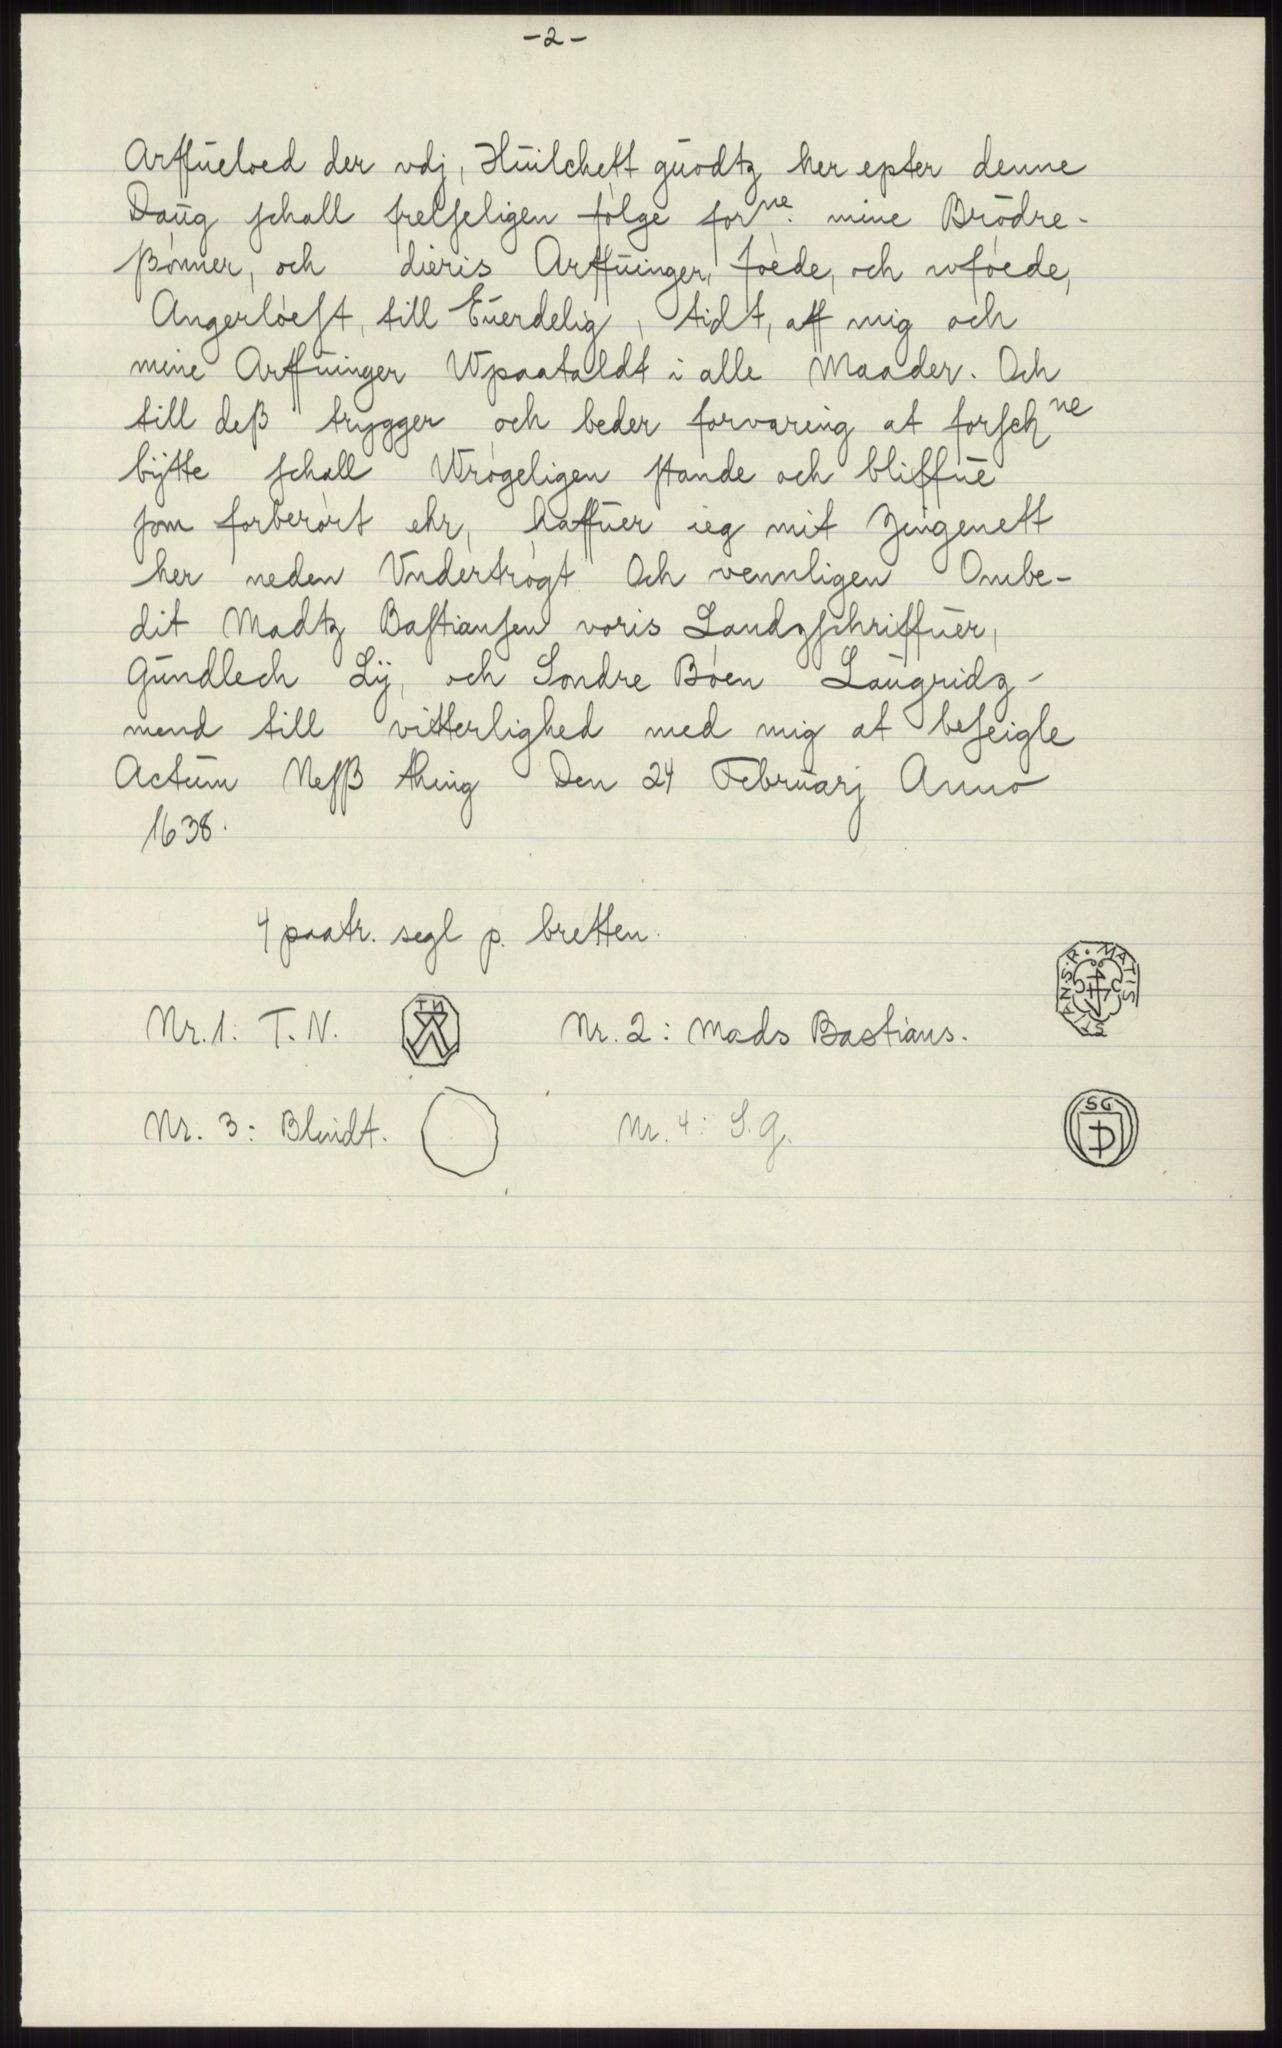 -2-
Arffueloed der vdj, Huilchett guodtz her epter denne
Daug schall frelseligen følge for ne. mine Brødre-
ßønner, och dieris Arffuinger, føede, och vføede,
Angerløest, till Euerdelig, tidt, aff mig och
mine Arffuinger Wpaataldt i alle Maader. Och
till deß trygger och beder forvaring at forsch ne
bytte schall Wrøgeligen stande och bliffue
som forberørt ehr, haffuer ieg mit Zingenett
her neden Vndertrøgt. Och vennligen Ombe-
dit Madtz Bastiansen voris Landzschriffuer,
Gundlech Lij, och Sondre Bøen Laugridz-
mend till vitterlighed med mig at beseigle
Actum Nesß thing Den 24 Februarj Anno
1638.
4 paatr. segl p. bretten.
Nr. 1: T. N.
TN
Nr. 2: Mads Bastians.
MATIS
STIANS.R.
Nr. 3: Blindt.
Nr. 4: S. G.
SG